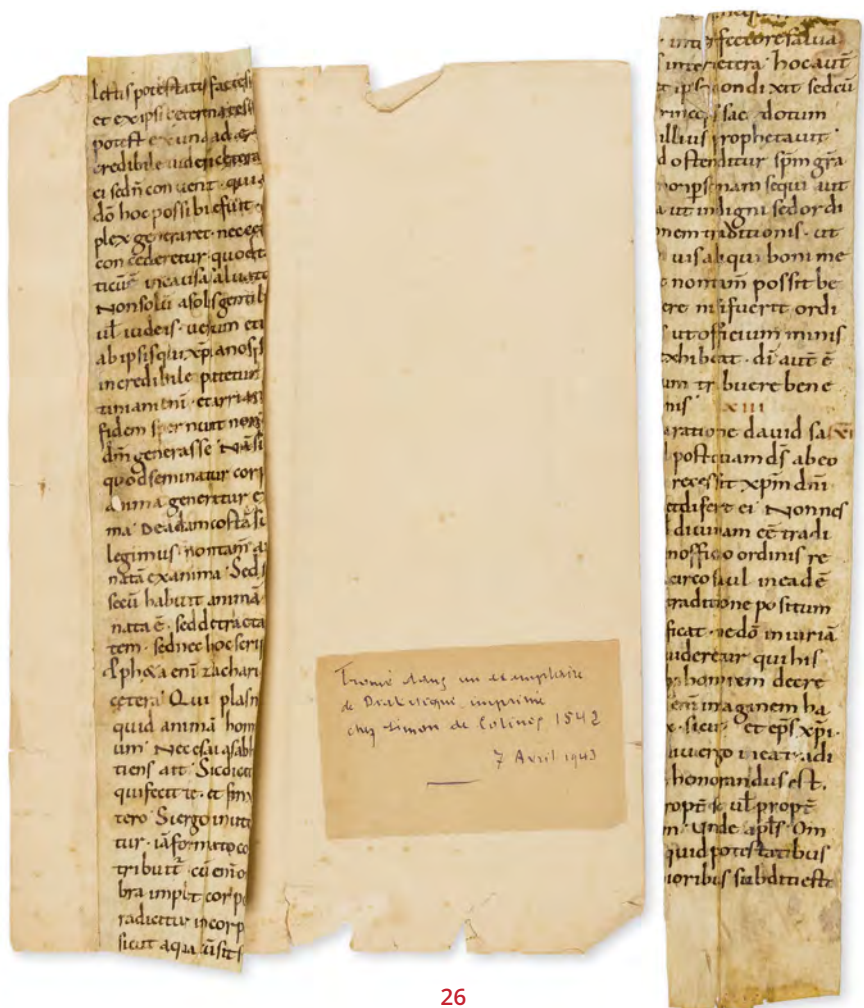 lectis potestatis factes
et ex ipsi eeternategen
potest ex una ad er
credibile uidericetera
ei sedn̄ conuenit · quia
dō hoc possibile fuit ·
plex generaret · nec eet
concederetur · quod et
ticū ē in causa saluato
Non solū a solis gentib
ul̄ iudeis · uerum eti
ab ipsis qui xp̄ianos se
incredibile putetur
tiniani enī · et arriani
fidem spernunt non
dm̄ generasse · Nā si
quod seminatur corp
anima generetur ex
ma · De adam costā su
legimus · non tam̄ a
natā ex anima · Sed s
secū habuit animā
nata ē · sed detracta
tem · sed nec hoc scrip
ę phœa enī zachari
cetera · Qui plasm
quid animā hom
um · Nec esaias ab
tiens ait · Sic dicit
qui fecit te · et finx
tero · Si ergo in ute
tur · iā formato co
tribuit · cū enī o
bra implet corpo
radicitur in corp
sicut aqua
Trouvé dans un exemplaire
de Dialectique imprimé
chez Simon de Colines 1542
7 Avril 1943
interfectore salua
inter cetera · hoc aut̄
ipse non dixit sed cū
princeps sacerdotum
illius prophetauit ·
d ostenditur sp̄m grā
personam sequi aut
ut indigni sed ordi
nem traditionis · ut
uis aliqui boni me
non tam̄ possit be
ere nisi fuerit ordi
ut officium minis
exhibeat · di aut̄ ē
um tribuere bene
nis XIII
aratione dauid sa XI
postquam ds̄ ab eo
recessit xp̄m dni
et difert ei · Nonnes
diuinam eē tradi
n officio ordinis re
circo saul in eadē
traditione positum
ficat · ne dō iniuriā
uideretur qui his
hominem decre
enī imaginem ha
x · sicut et ep̄s xp̄i ·
iu ergo in ea tradi
honorandus est ·
propt̄ se ul̄ propt̄
m · Unde apls̄ · Om
quid potestatibus
ioribus subditi este
26